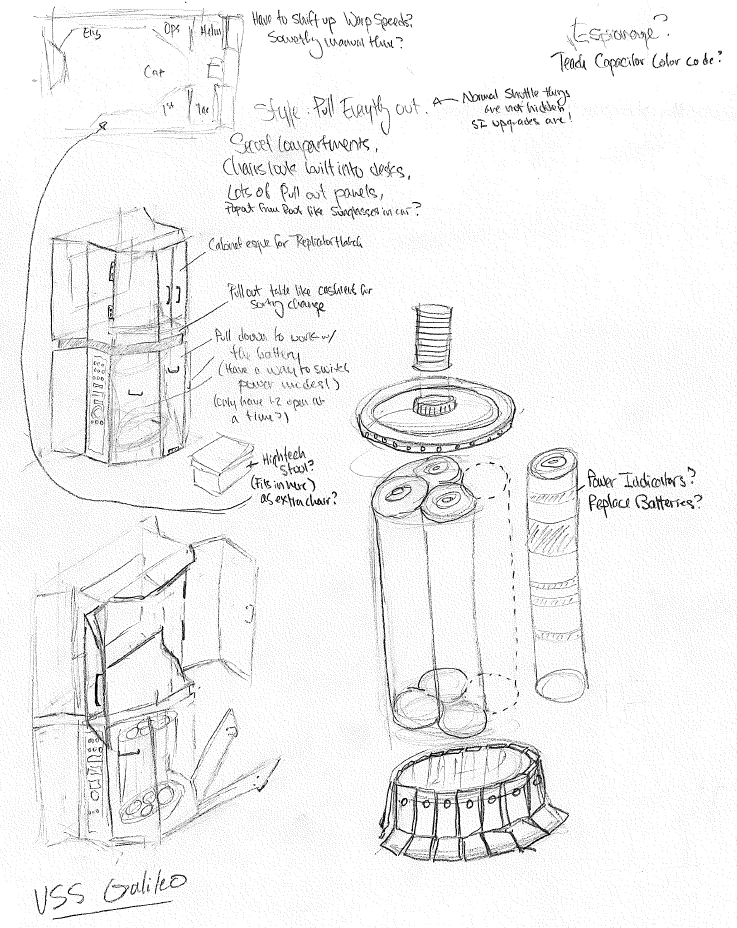 Eng
Ops
Helm
Cap
1st
Tac
Have to shift up Warp Speeds?
manual then?
Espionage?
Teach Capacitor Color code?
Style: Pull Everything out.
Normal Shuttle things
are not hidden
SI upgrades are!
Secret Compartments,
Chairs look built into desks,
Lots of Pull out panels,
Popout from Roof like Sunglasses in car?
Cabinet esque for Replicator Hatch
Pull out table like cashiers for
sorting change
Pull down to work w/
the battery
(Have a way to switch
power modes!)
(only have 12 open at
a time?)
Hightech
Stool?
(Fits in here)
as extra chair?
Power Indicators?
Replace Batteries?
USS Galileo